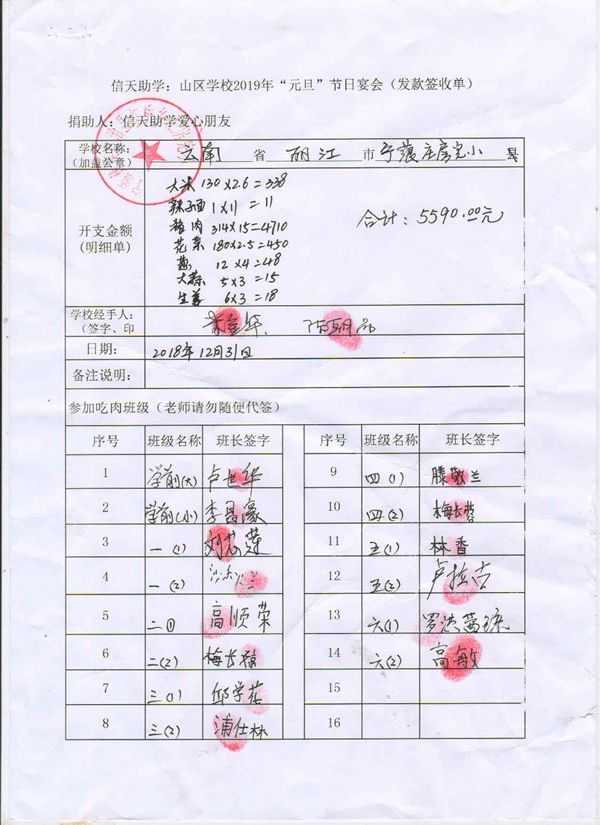 信天助学：山区学校2019年“元旦”节日宴会（发款签收单）
捐助人：信天助学爱心朋友
学校名称：
（加盖公章） 云南 省 丽江 市 宁蒗 庄房完小 县
开支金额
（明细单）
大米 130×2.6=338
辣子面 1×11=11
猪肉 314×15=4710
花菜 180×2.5=450
葱 12×4=48
大蒜 5×3=15
生姜 6×3=18
合计：5590.00元
学校经手人：
（签字、印
日期： 2018年12月31日
备注说明：
参加吃肉班级（老师请勿随便代签）
序号 班级名称 班长签字 序号 班级名称 班长签字
1 学前(大) 卢世华 9 四(1) 滕敬兰
2 学前(小) 李昌濠 10 四(2) 梅长蓉
3 一(1) 刘芯莲 11 五(1) 林香
4 一(2) 12 五(2) 卢拉吉
5 二(1) 高顺荣 13 六(1) 罗洪茜琼
6 二(2) 梅长 14 六(2) 高敏
7 三(1) 邱学花 15
8 三(2) 浦仕林 16